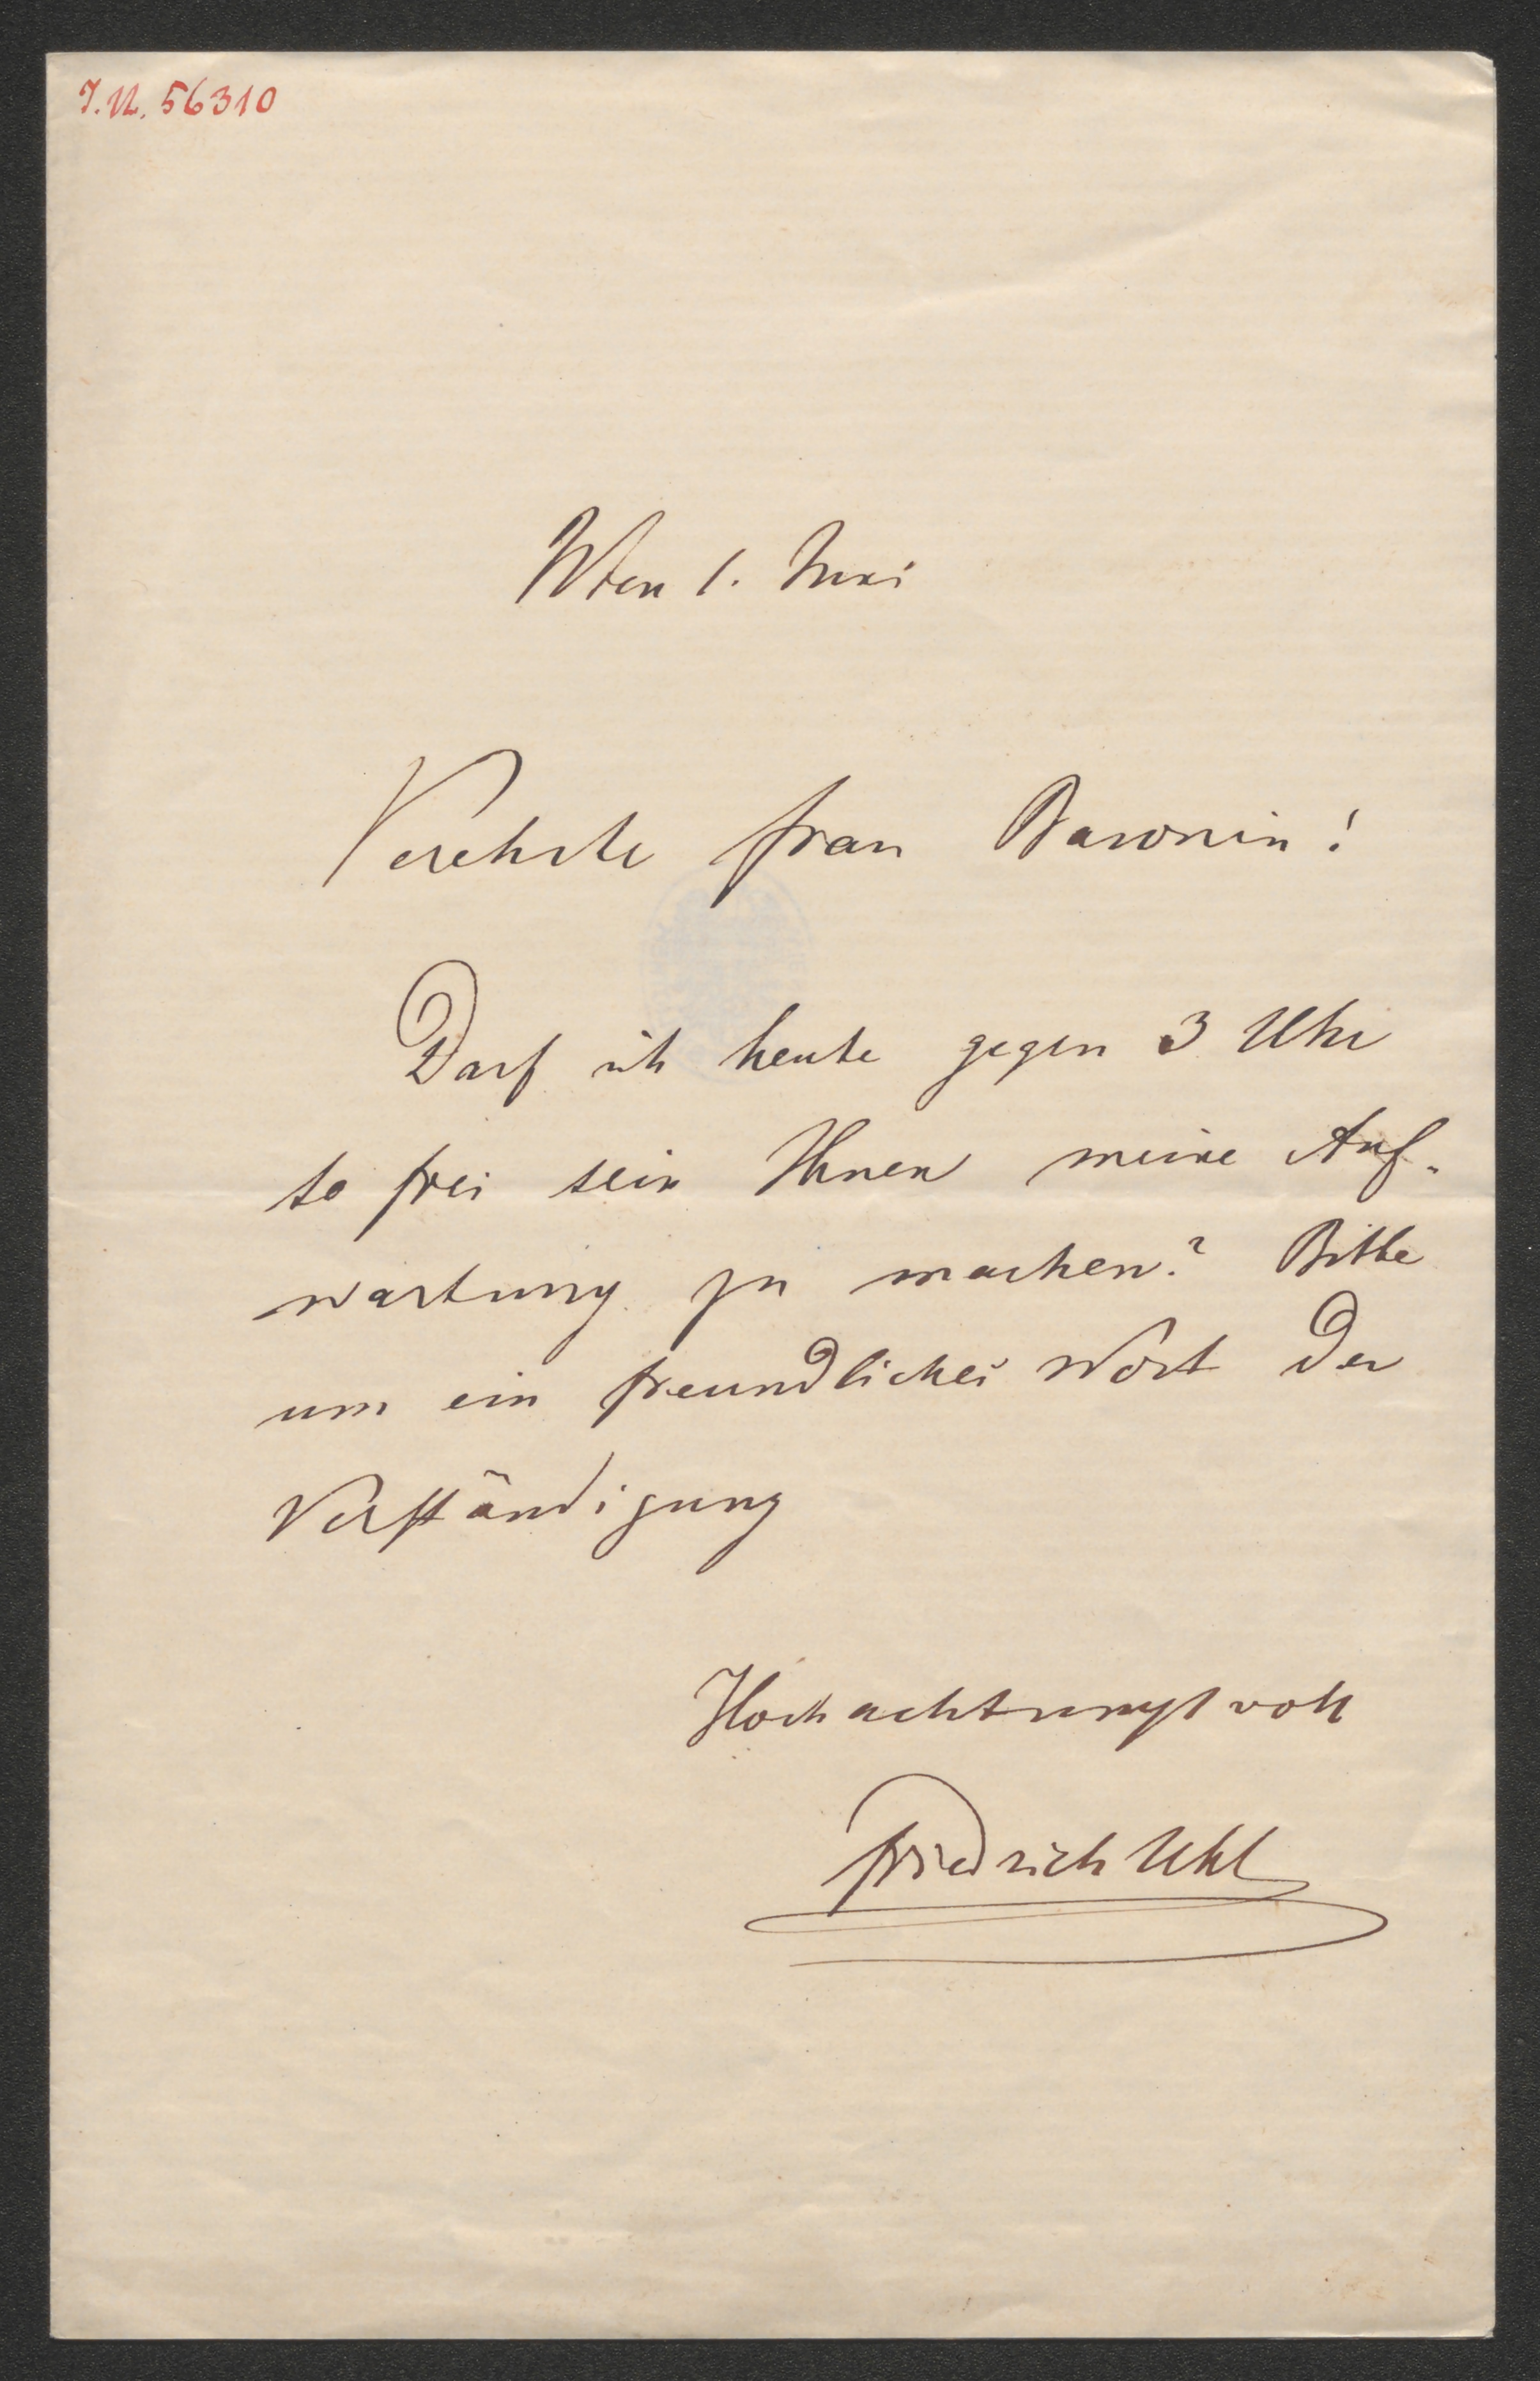 I.N. 56310
Wien 1. Juni
Verehrte Frau Baronin!
Darf ich heute gegen 3 Uhr
so frei sein Ihnen meine Auf-
wartung zu machen? Bitte
um ein freundliches Wort der
Verständigung
Hochachtungsvoll
Friedrich Uhl